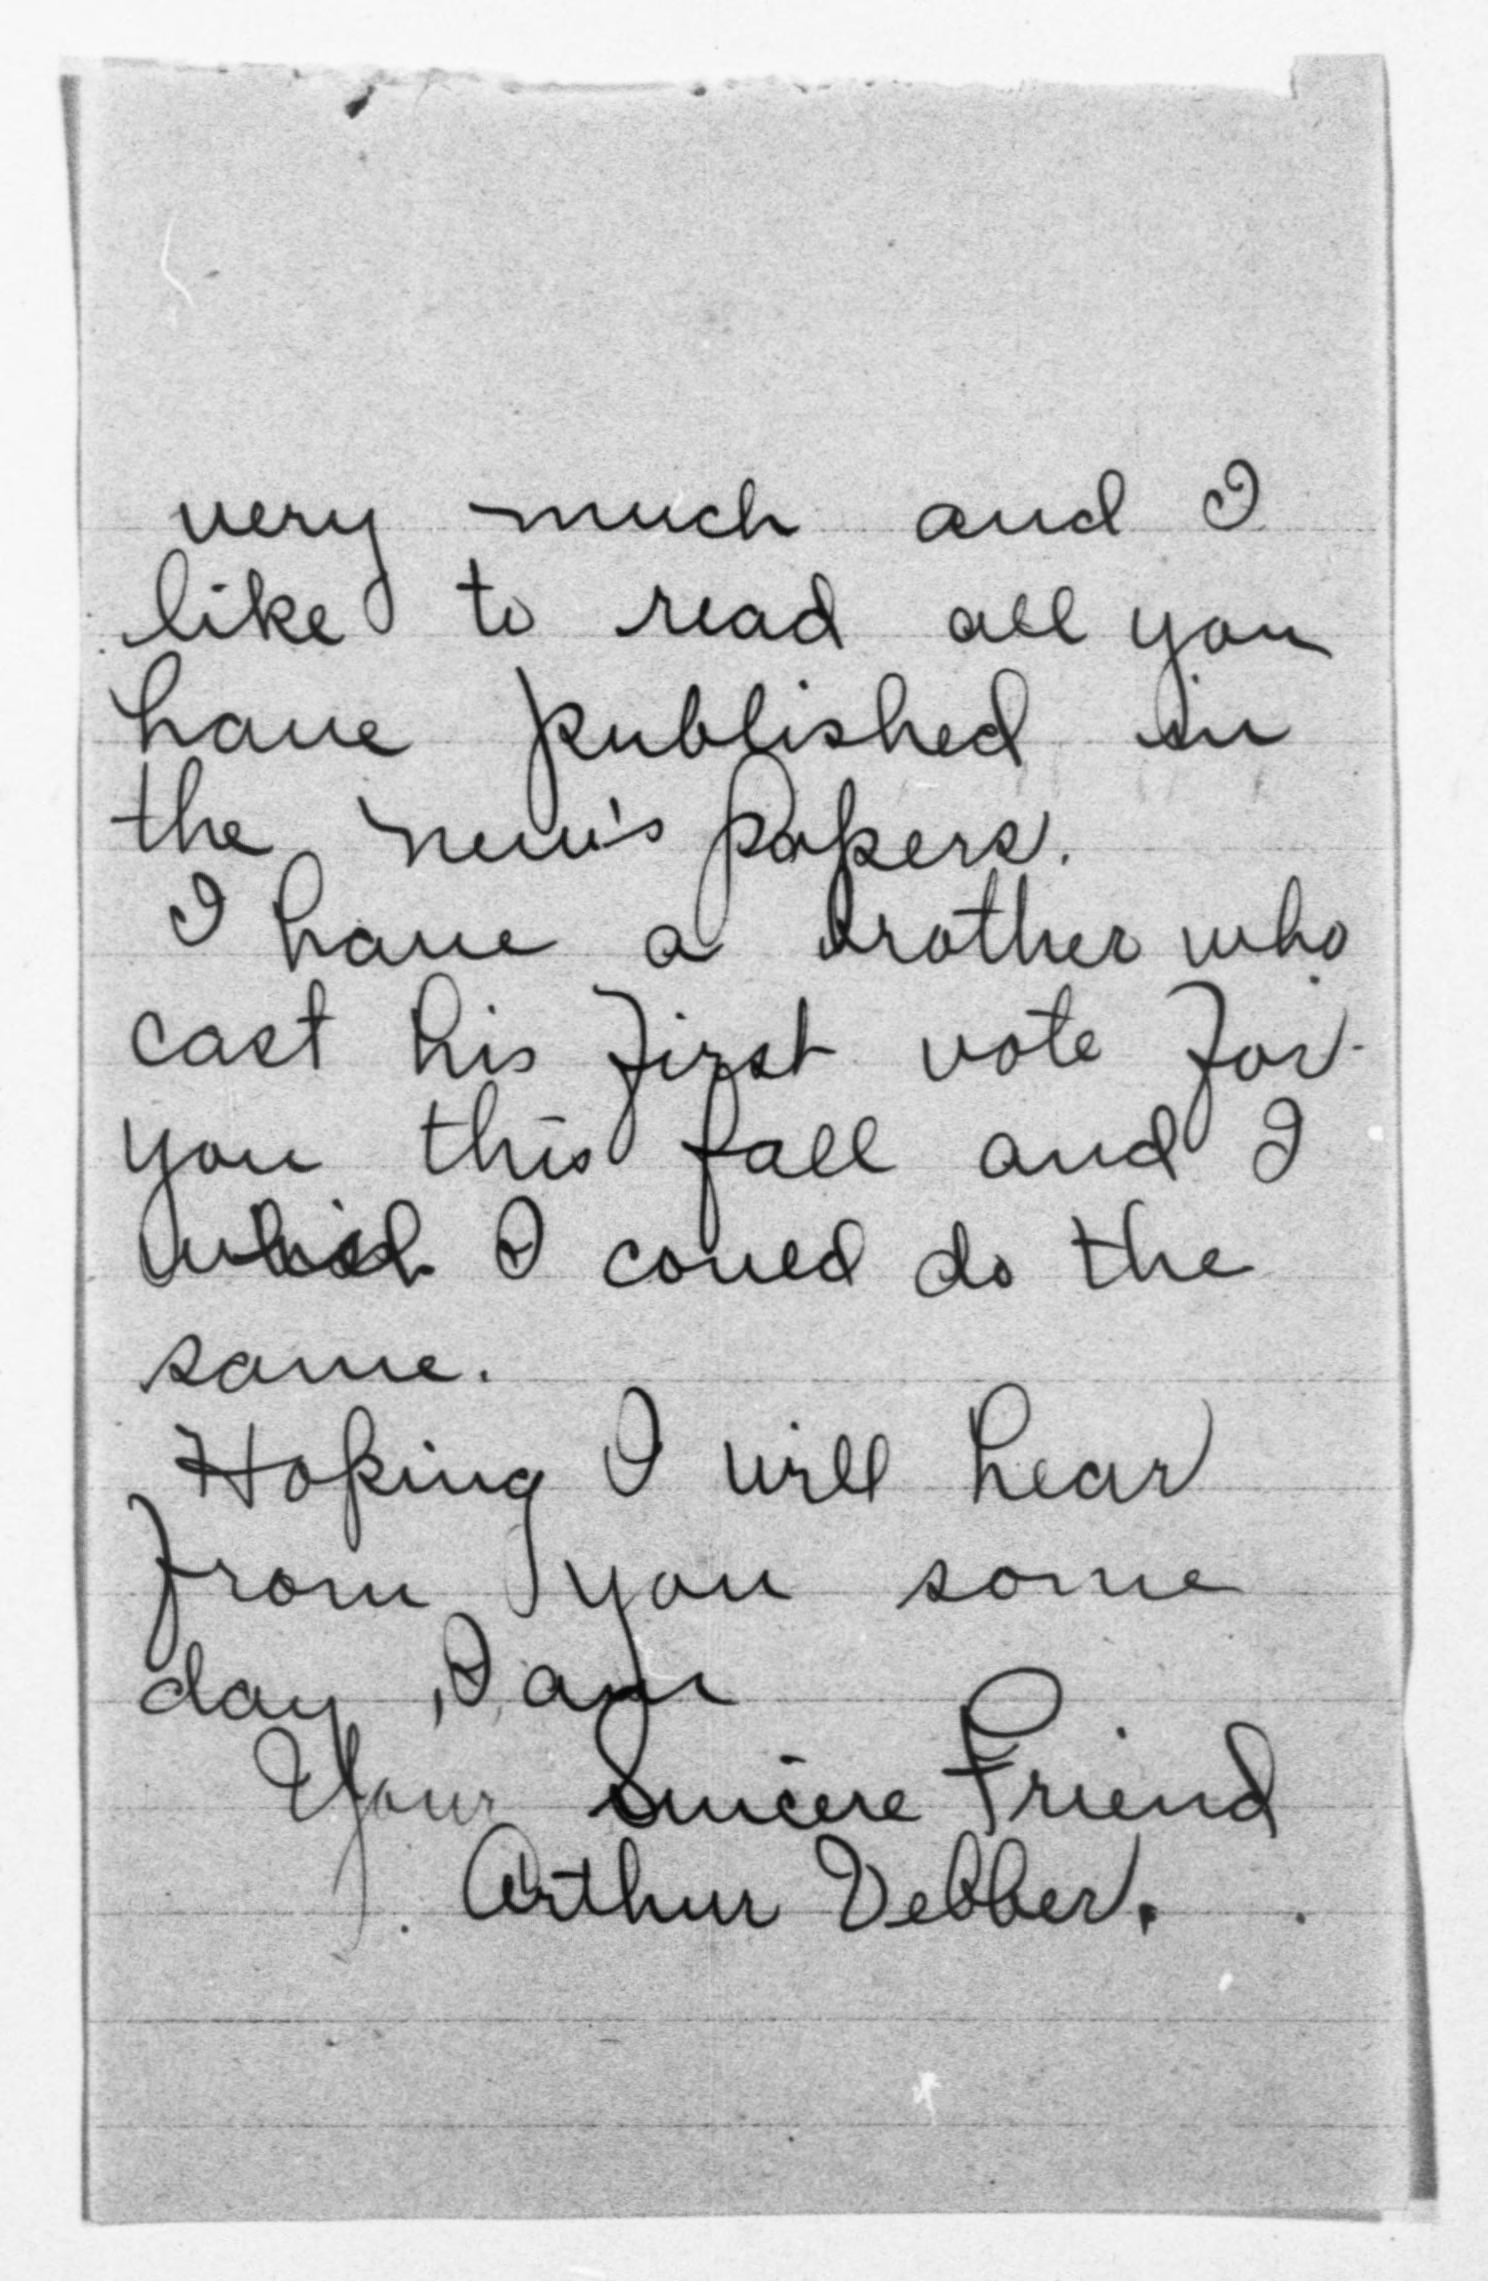 very much and I
like to read all you
have published in
the new's Papers.
I have a brother who
cast his first vote for
you this fall and I
whish I could do the
same.
Hoping I will hear
from you some
day, I am
Your Sincere Friend
Arthur Vebber.